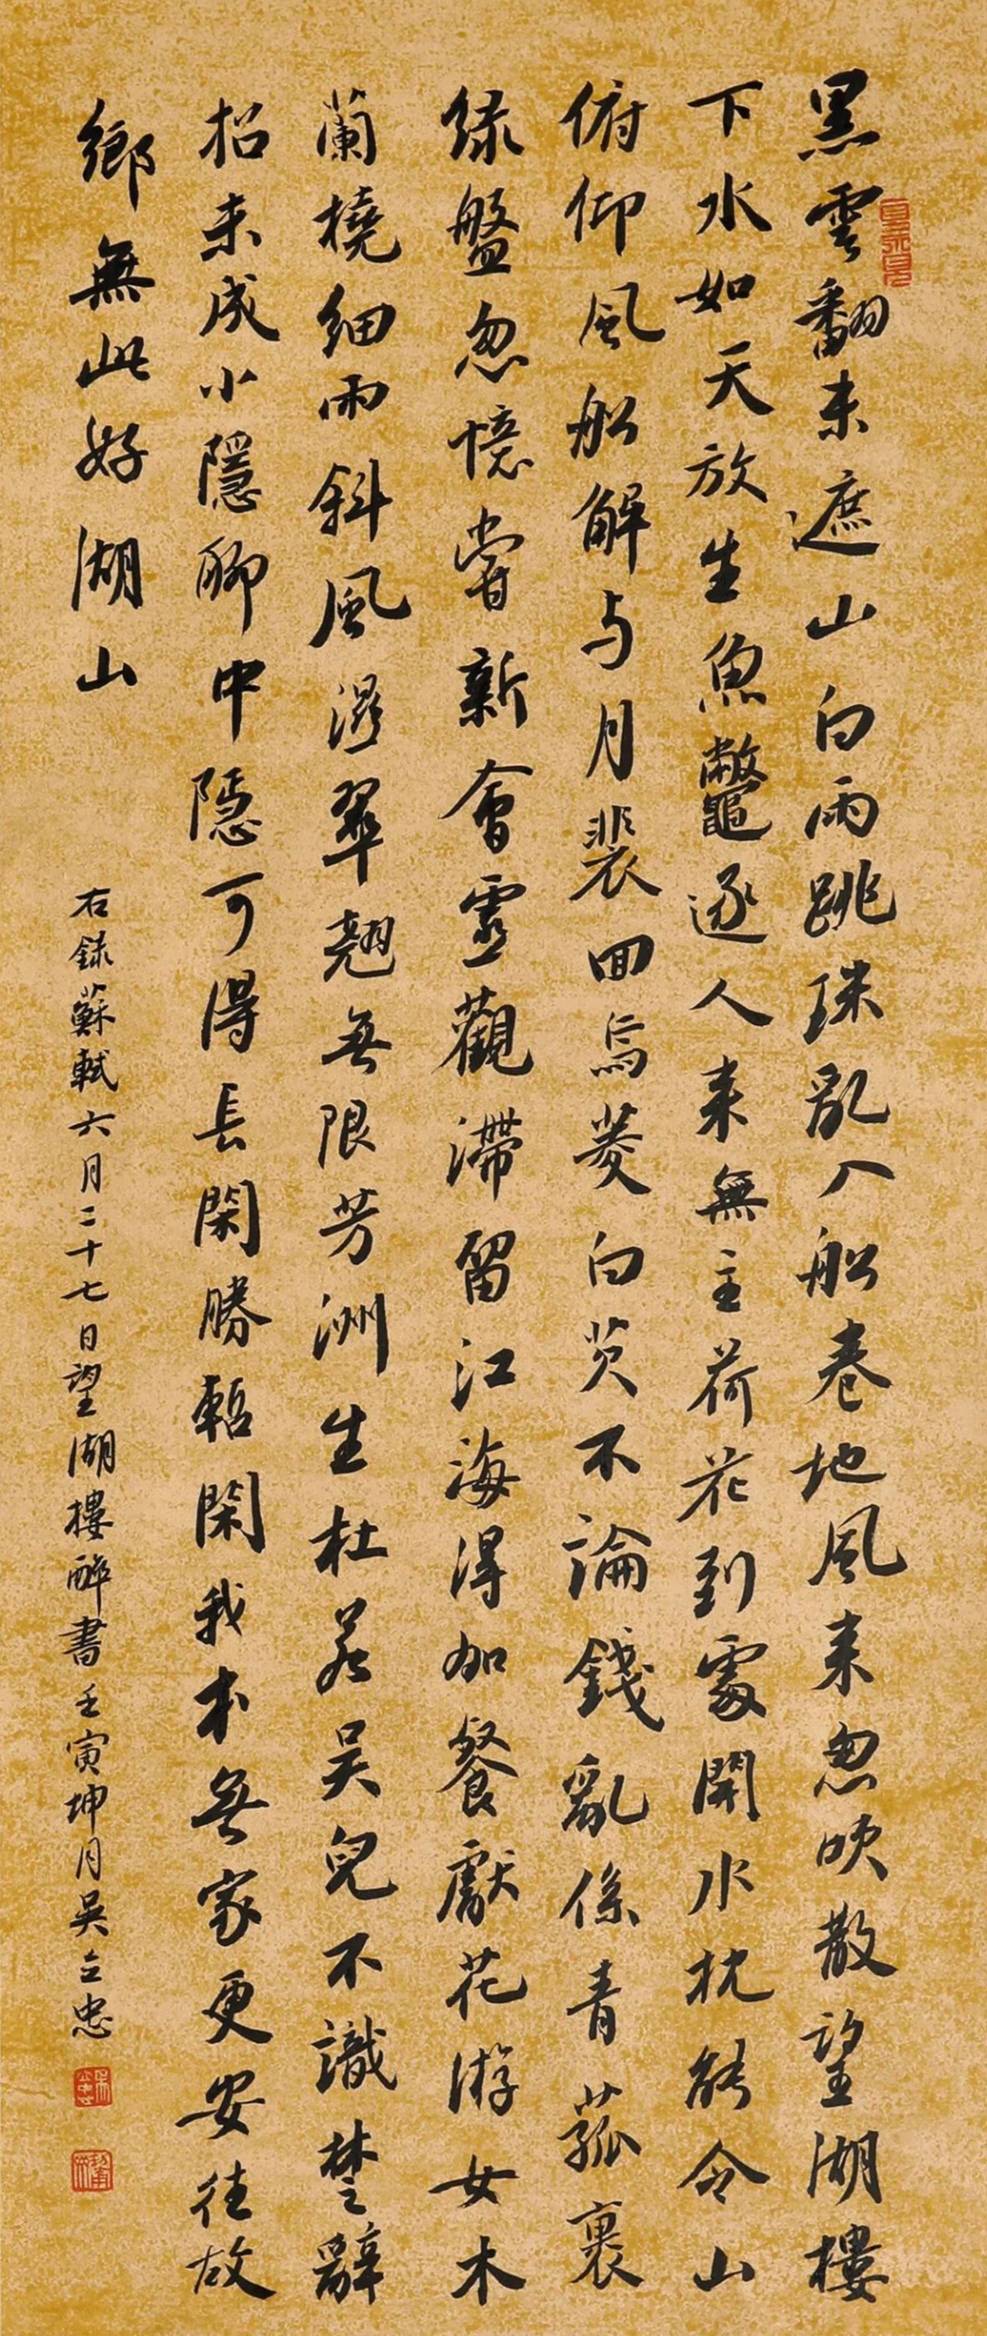 黑雲翻未遮山白雨跳珠亂入船卷地風来忽吹散望湖樓
下水如天放生魚鼈逐人来無主荷花到處開水枕能令山
俯仰風船解与月裴回烏菱白芡不論錢亂係青菰裹
绿盤忽憶嘗新會靈觀滯留江海得加餐獻花游女木
蘭橈细雨斜風濕翠翹無限芳洲生杜若吴兒不識楚辭
招未成小隱聊中隱可得長閑勝暫閑我本無家更安往故
鄉無此好湖山
右録蘇軾六月二十七日望湖樓醉書壬寅坤月吴立忠